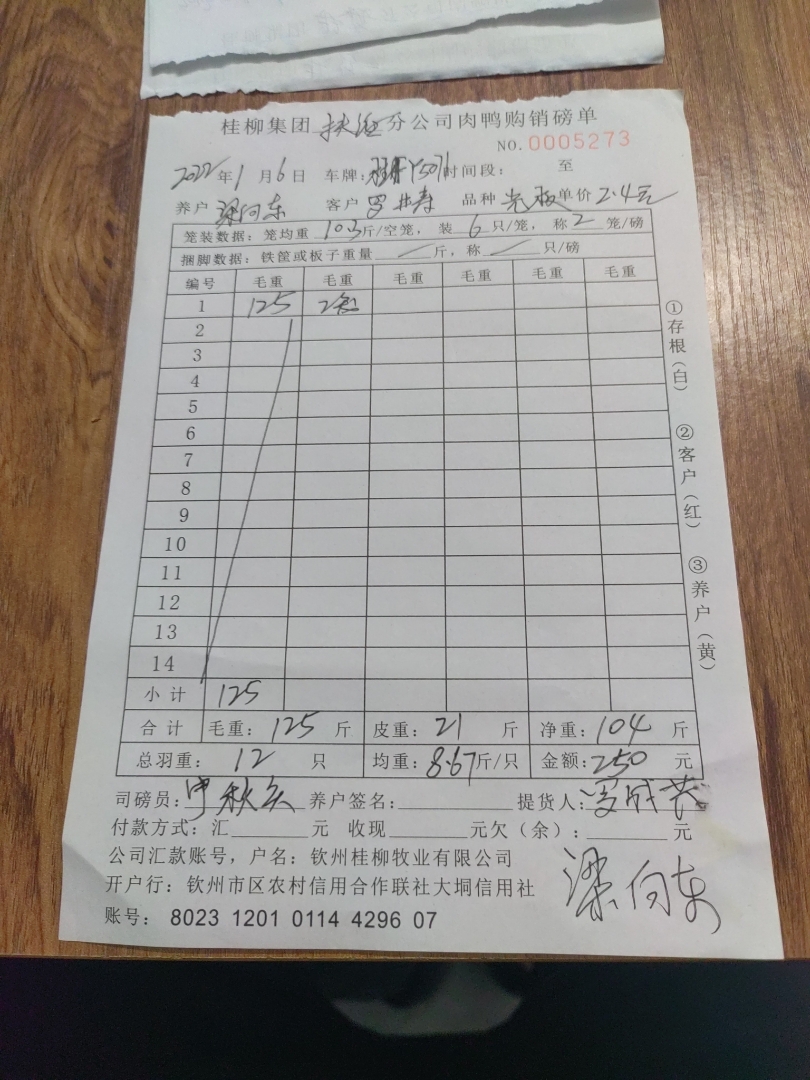 桂柳集团 扶绥 分公司肉鸭购销磅单
NO.0005273
2022年1月6日 车牌: Y5071 时间段: 至
养户 梁向东 客户 罗 寿 品种 单价 2.4元
笼装数据: 笼均重 10.5斤/空笼, 装 6 只/笼, 称 2 笼/磅
捆脚数据: 铁筐或板子重量 / 斤, 称 / 只/磅
编号 毛重 毛重 毛重 毛重 毛重 毛重
1 125 2笼
2
3
4
5
6
7
8
9
10
11
12
13
14
小计 125
合计 毛重: 125 斤 皮重: 21 斤 净重: 104 斤
总羽重: 12 只 均重: 8.67斤/只 金额: 250 元
司磅员: 养户签名: 提货人: 罗
付款方式: 汇 元 收现 元欠(余): 元
公司汇款账号, 户名: 钦州桂柳牧业有限公司
开户行: 钦州市区农村信用合作联社大垌信用社
账号: 8023 1201 0114 4296 07
梁向东
①存根(白)
②客户(红)
③养户(黄)